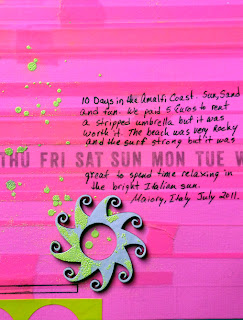 10 Days in the Amalfi Coast. Sun, Sand
and fun. We paid 5 Euros to rent
a stripped umbrella but it was
worth it. The beach was very Rocky
and the surf strong but it was
THU FRI SAT SUN MON TUE W
great to spend time relaxing in
the bright Italian sun.
Maiory, Italy July 2011.